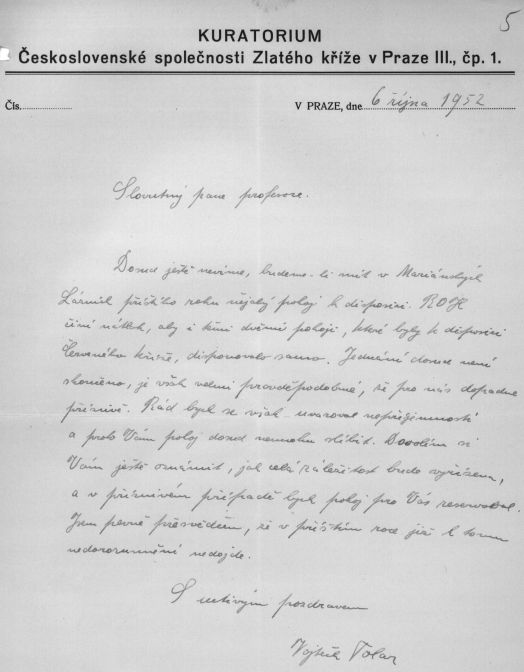 5
KURATORIUM
Československé společnosti Zlatého kříže v Praze III., čp. 1.
Čís. V PRAZE, dne 6 října 1952
Slovutný pane profesore.
Dosud ještě nevíme, budeme-li mít v Mariánských
Lázních příštího roku nějaký pokoj k disposici. ROH
činí nátlak, aby i těmi dvěmi pokoji, které byly k disposici
Červeného kříže, disponovalo samo. Jednání dosud není
skončeno, je však velmi pravděpodobné, že pro nás dopadne
příznivě. Rád bych se však uvaroval nepříjemností
a proto Vám pokoj dosud nemohu slíbit. Dovolím si
Vám ještě oznámit, jak celá záležitost bude vyřízena,
a v příznivém případě bych pokoj pro Vás reservoval.
Jsem pevně přesvědčen, že v příštím roce již k tomu
nedorozumění nedojde.
S uctivým pozdravem
Vojtěch Tolar